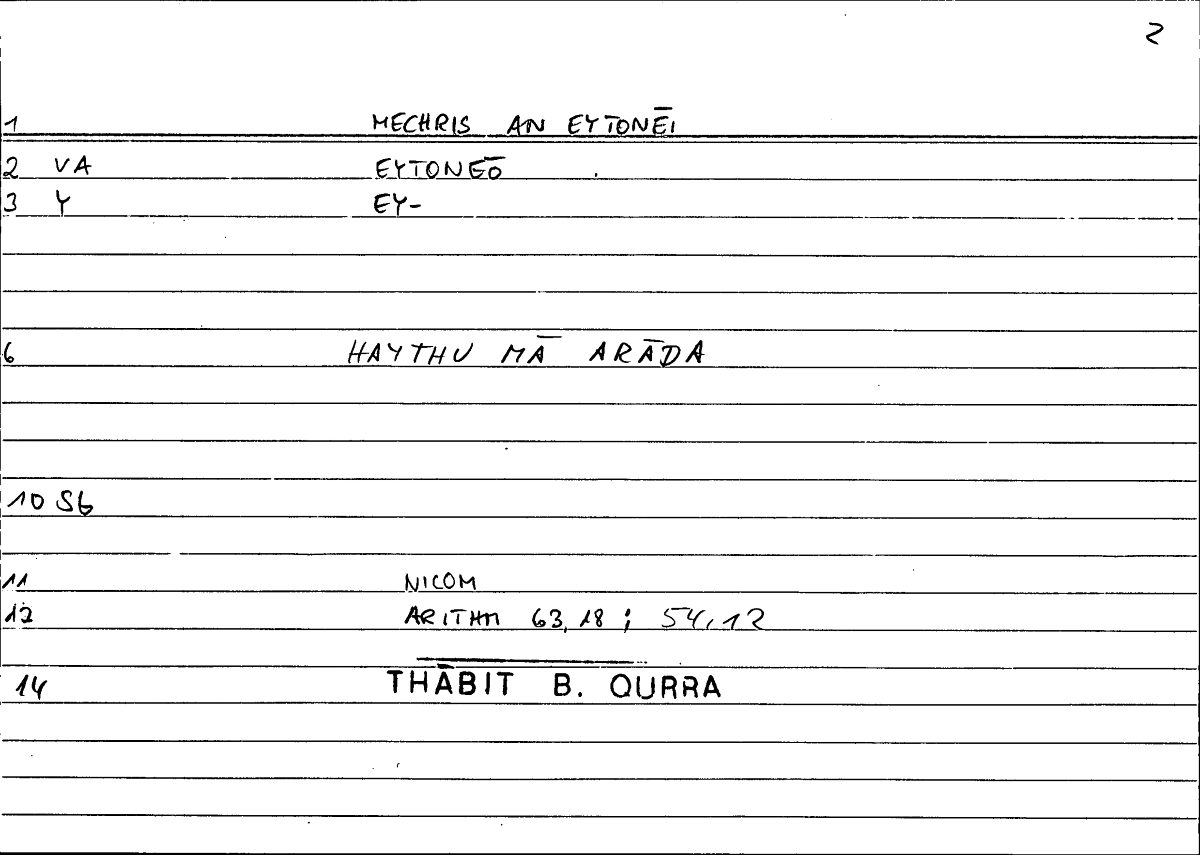 2
1 MECHRIS AN EYTONĒI
2 VA EYTONEŌ
3 Y EY-
6 HAYTHU MĀ ARĀDA
10 Sb
11 NICOM
12 ARITHM 63,18 ; 54,12
14 THĀBIT B. QURRA